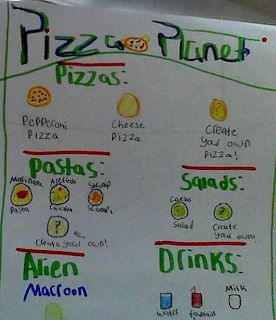 Pizza Planet
Pizzas:
Pepperoni Pizza
Cheese Pizza
? Create your own Pizza!
Pastas:
Marinara Pasta
Alfredo Chicka
Shrimp Scampi
? Create your own!
Salads:
Caesar Salad
? Create your own!
Alien
Macroon
Drinks:
Water
fountain
Milk